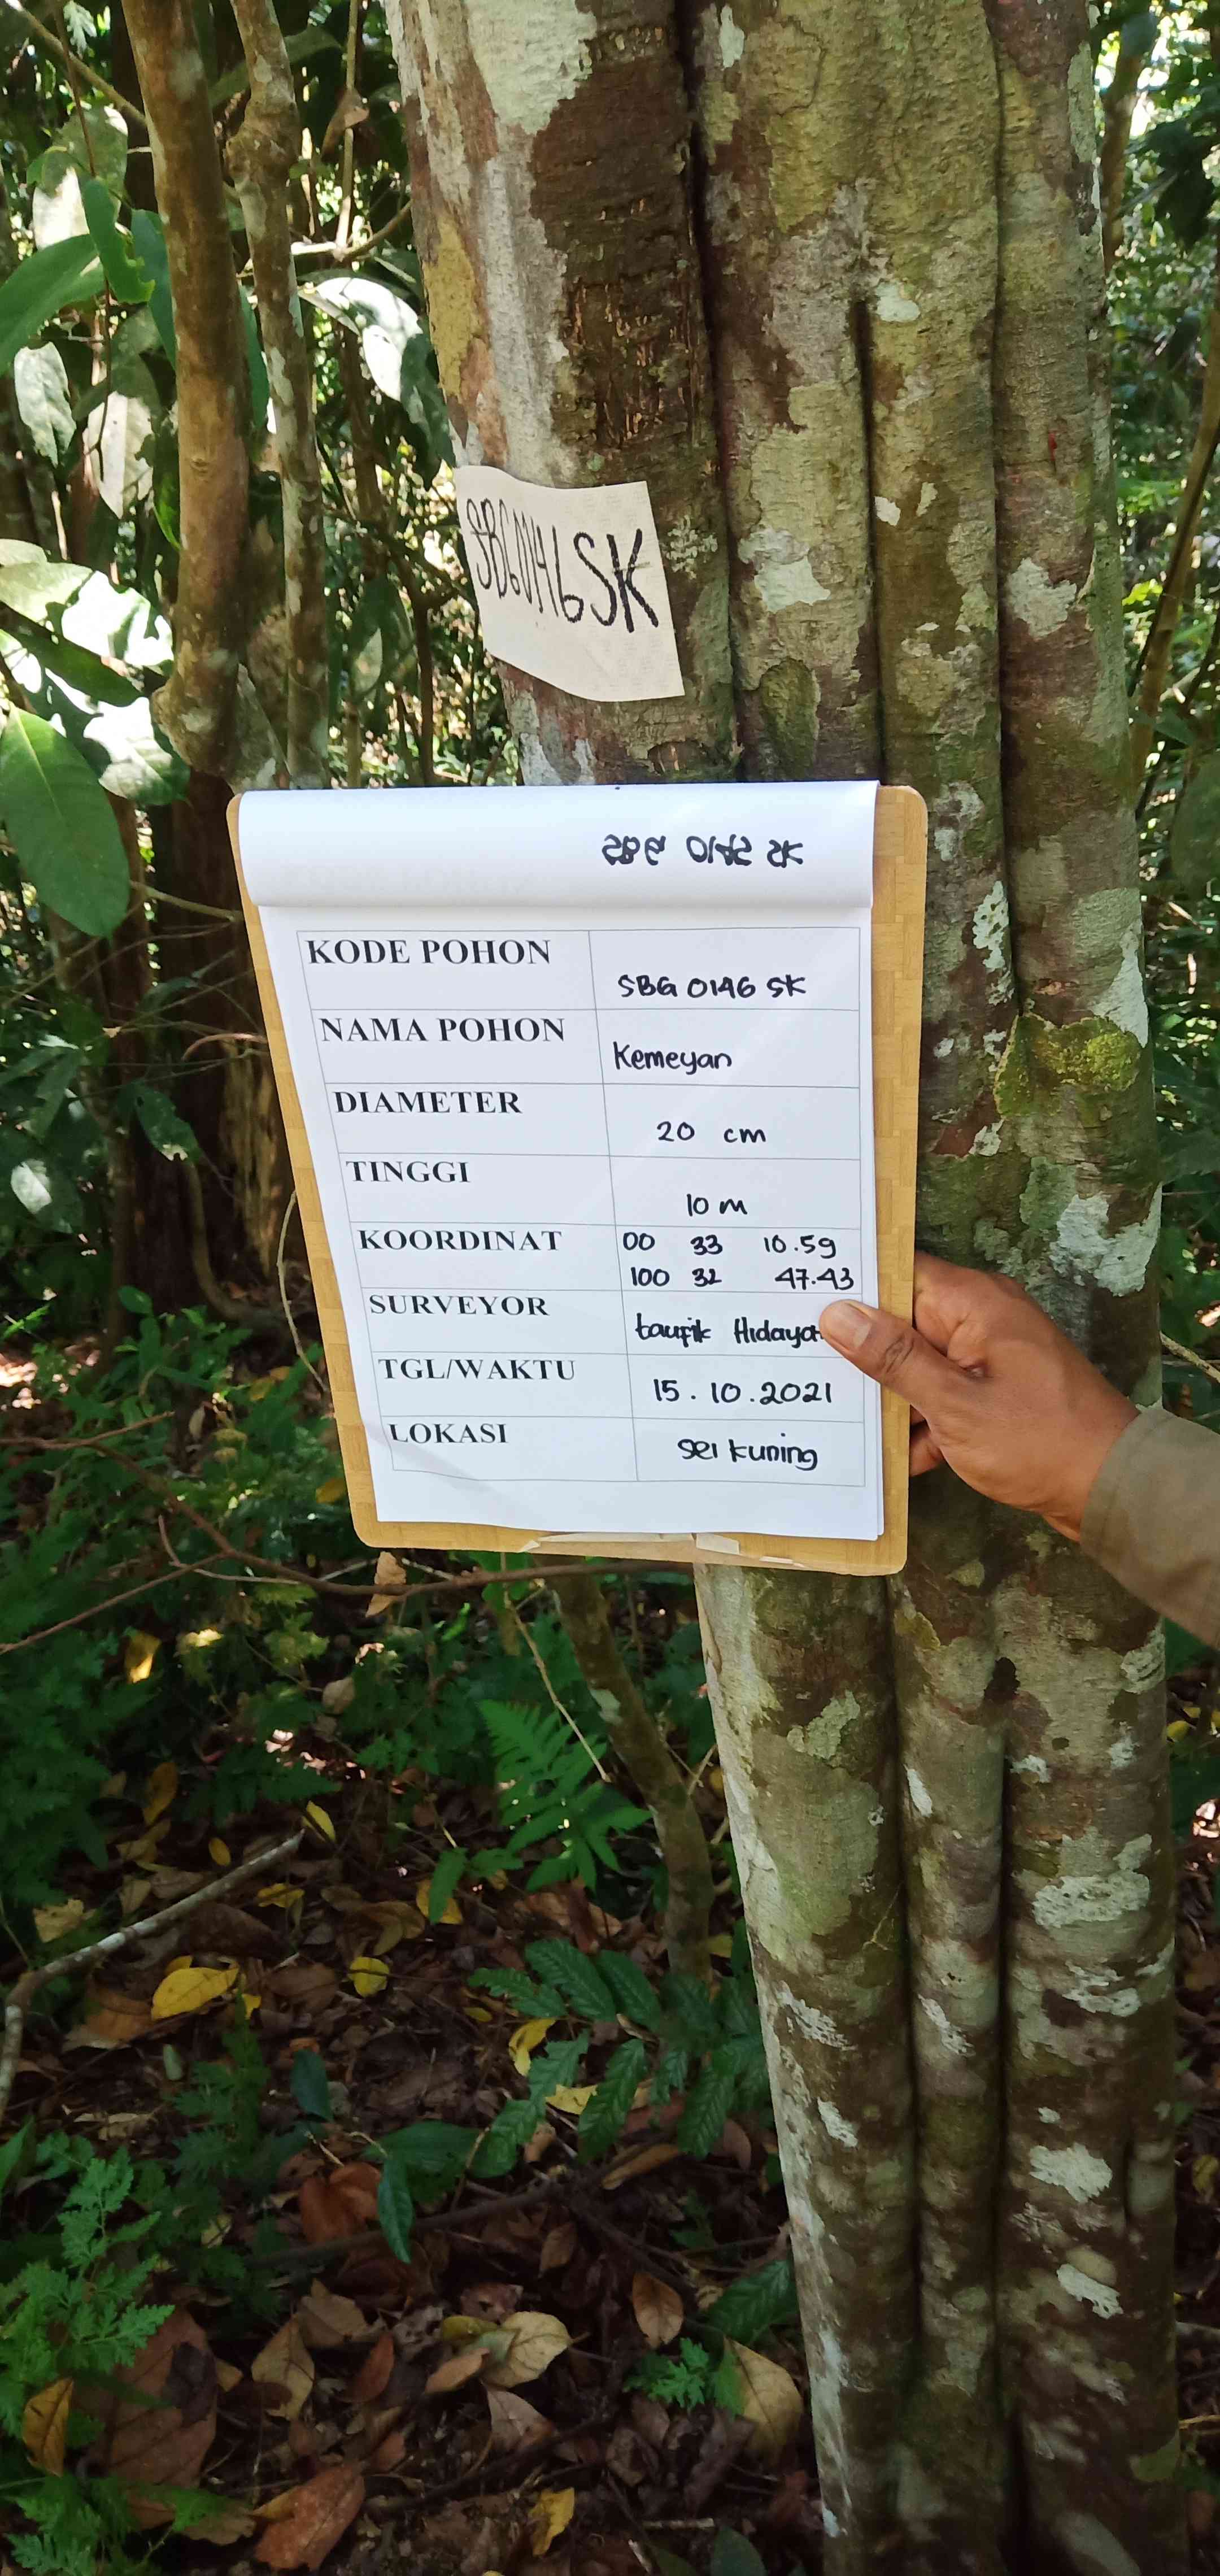 SBG0146SK
KODE POHON SBG 0146 SK
NAMA POHON Kemeyan
DIAMETER 20 cm
TINGGI 10 m
KOORDINAT 00 33 10.59
100 32 47.43
SURVEYOR taufik Hidayat
TGL/WAKTU 15.10.2021
LOKASI sei kuning